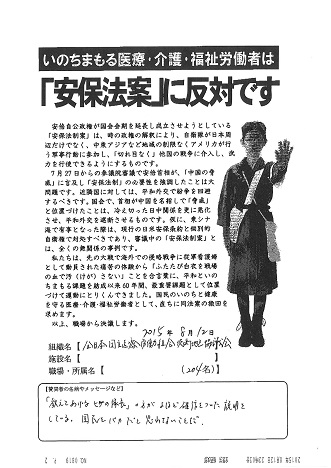 いのちまもる医療・介護・福祉労働者は
「安保法案」に反対です
安倍自公政権が国会会期を延長し成立させようとしている
「安保法制案」は、時の政権の解釈により、自衛隊が日本周
辺だけでなく、中東アジアなど地域の制限なくアメリカが行
う軍事行動に参加し、「切れ目なく」他国の戦争に介入し、武
力を行使できるようにするものです。
７月27日からの参議院審議で安倍首相が、「中国の脅
威」に言及し「安保法制」の必要性を強調したことは大
問題です。近隣国に対しては、平和外交で紛争を回避
するべきです。国会で、首相が中国を名指しで「脅威」
と位置づけたことは、冷え切った日中関係を更に悪化さ
せ、平和外交を逆行させるものです。仮に、東シナ
海で有事となった際は、現行の日米安保条約と個別的
自衛権で対処すべきであり、審議中の「安保法制案」と
は、全くの無関係の事例です。
私たちは、先の大戦で海外での侵略戦争に従軍看護婦
として動員された痛苦の体験から「ふたたび白衣を戦場
の血で汚（けが）さない」ことを合言葉に、平和といの
ちまもる課題を結成以来60年間、最重要課題として位置
づけて運動にとりくんできました。国民のいのちと健康
を守る医療・介護・福祉労働者として、直ちに同法案の撤回を
求めます。
以上、職場から決議します。
2015年 8月12日
組織名【
施設名【 】
職場・所属名【 (204名)】
【賛同者の名前やメッセージなど】
「教えてあげる ヒゲの隊長」
している。国民をバカだと思わないことだ。